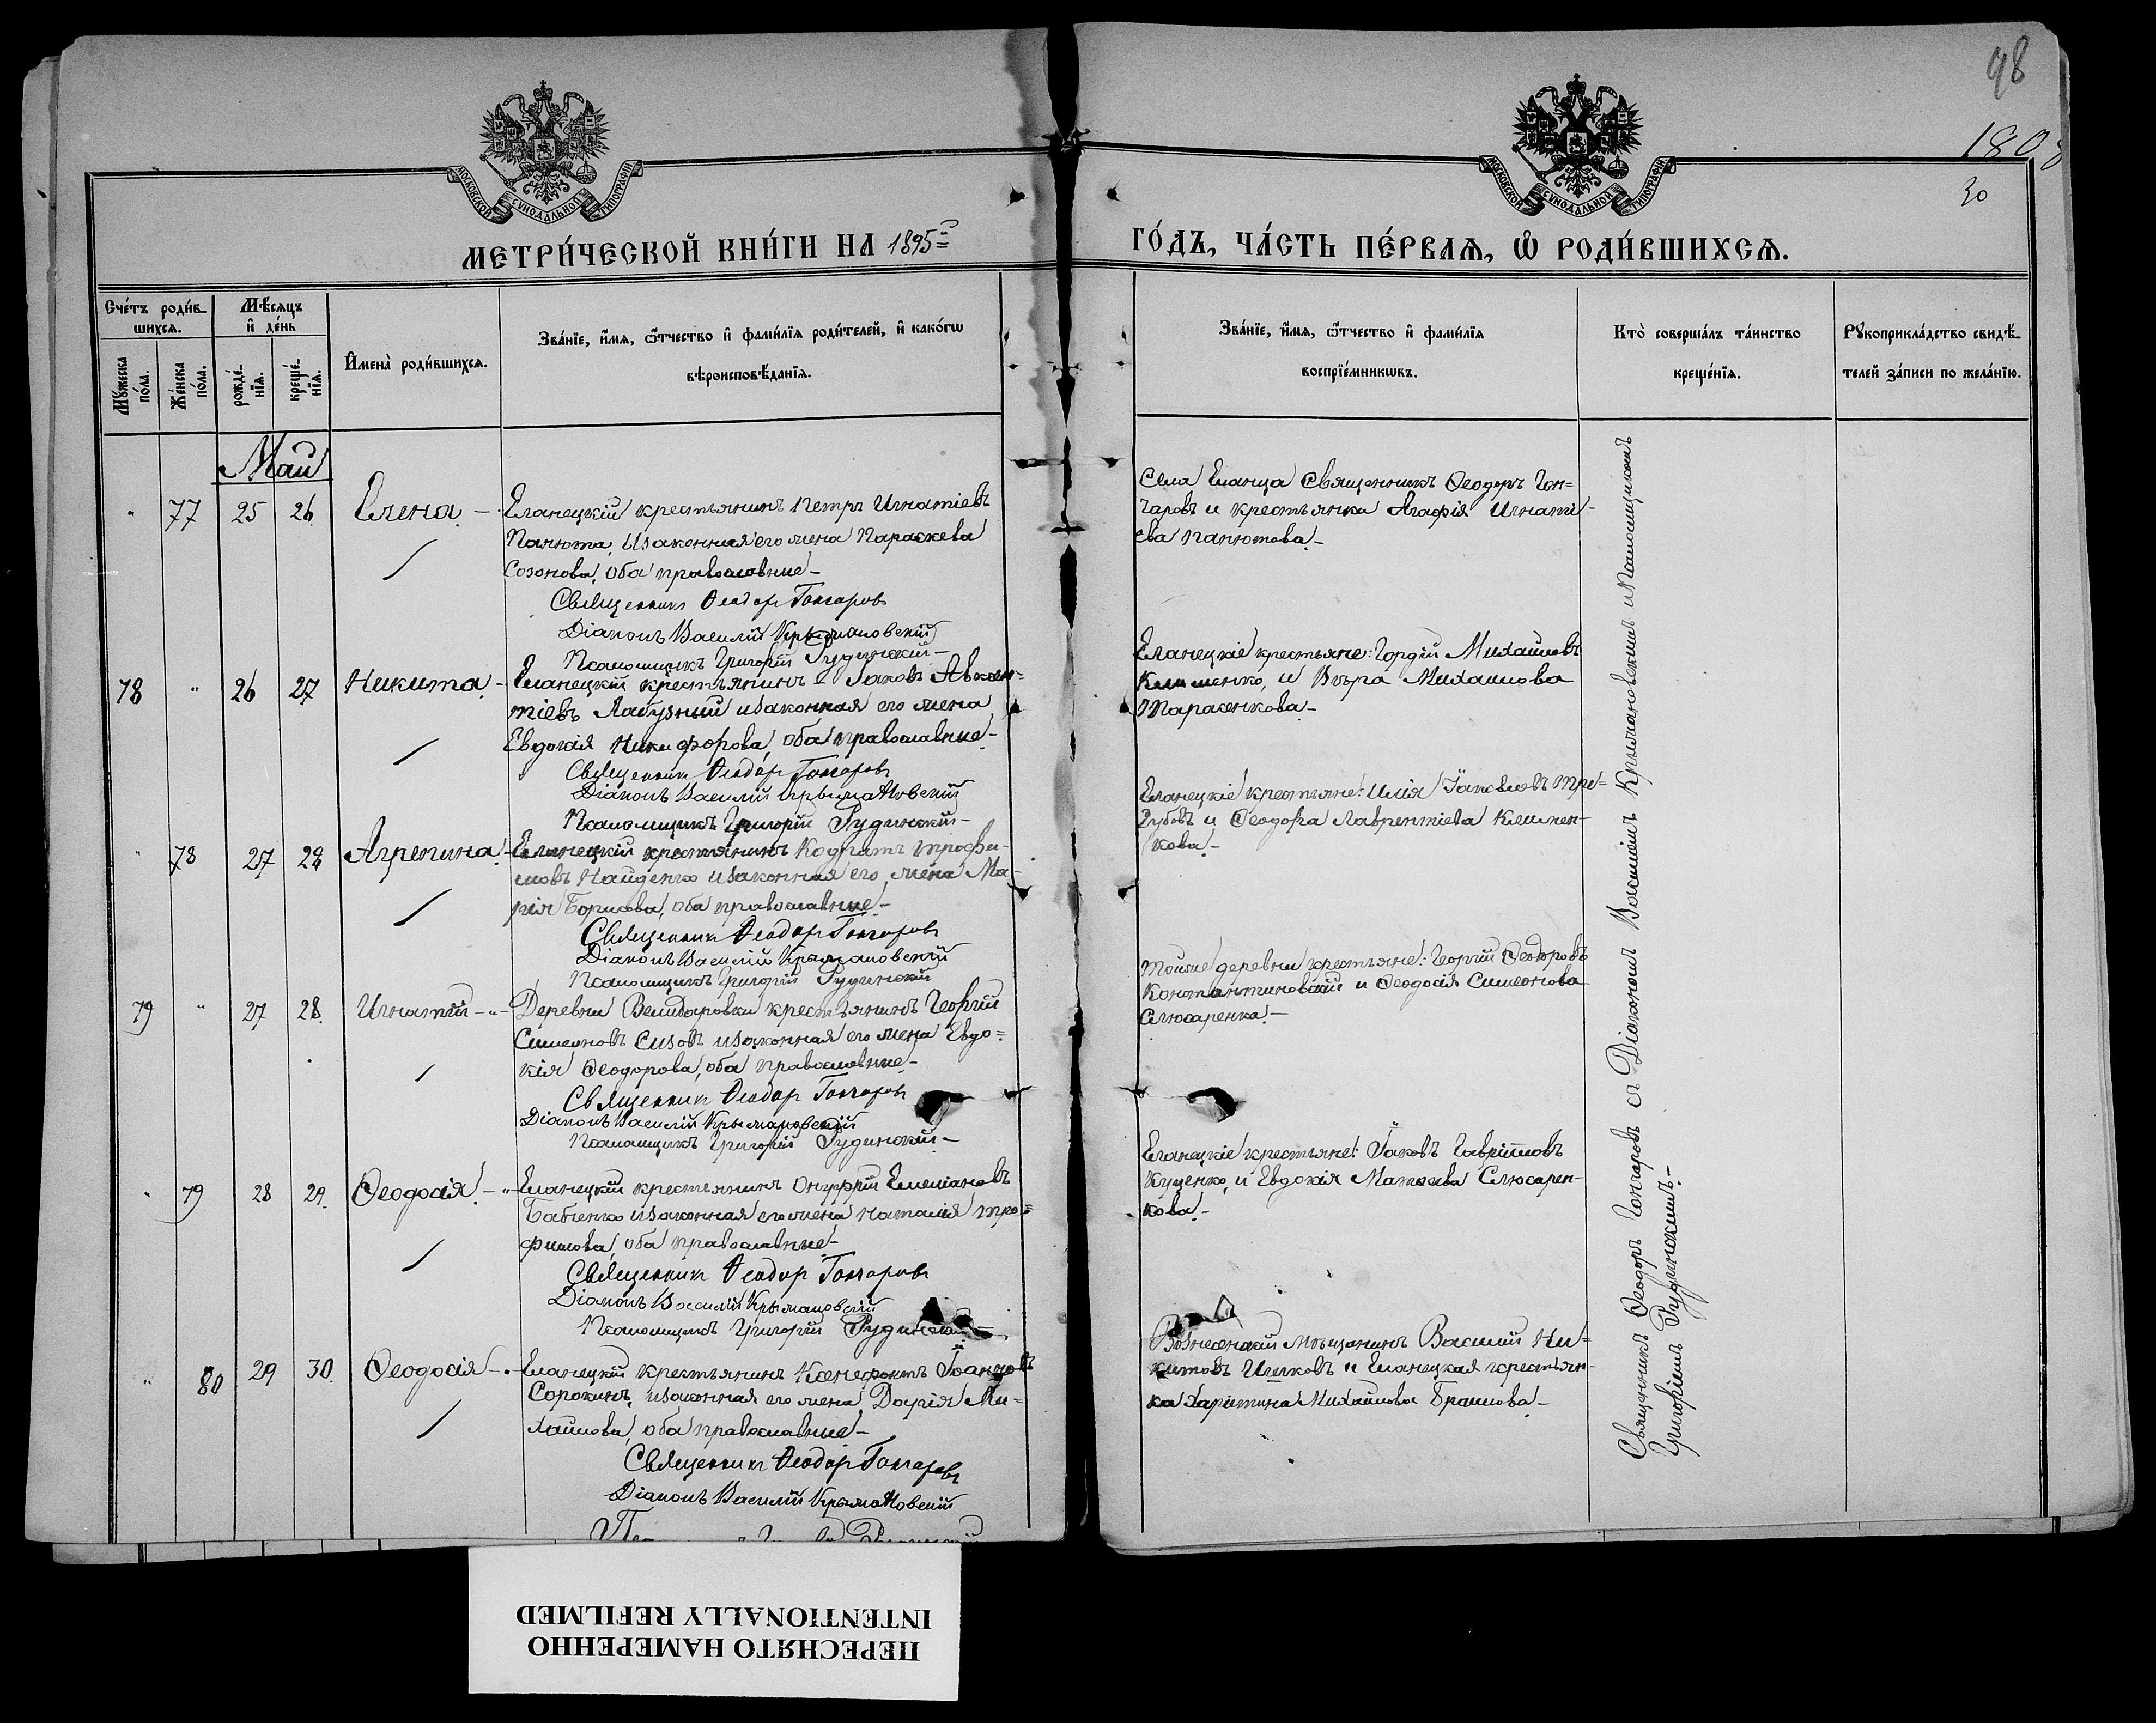 98
180
30
МОСКОВСКОЙ СѴНОДАЛЬНОЙ ТИПОГРАФІИ
МОСКОВСКОЙ СѴНОДАЛЬНОЙ ТИПОГРАФІИ
МЕТРИ́ЧЕСКОЙ КНИ́ГИ НА 1895й ГО́ДЪ, ЧА́СТЬ ПЕ́РВАѦ, Ѽ РОДИ́ВШИХСѦ.
Сче́тъ роди́в-
шихсѧ.
Мѣ́сѧцъ
и҆ де́нь
Мꙋ́жеска
по́ла.
Же́нска
по́ла.
рожде́-
нїѧ.
креще́-
нїѧ.
И҆мена̀ роди́вшихсѧ.
Зва́нїе, и҆́мѧ, ѻ҆́тчество и҆ фами́лїѧ роди́телей, и҆ како́гѡ
вѣроисповѣ́данїѧ.
Зва́нїе, и҆́мѧ, ѻ҆́тчество и҆ фами́лїѧ
воспрїе́мникѡвъ.
Кто̀ соверша́лъ та́инство
креще́нїѧ.
Рꙋкоприкла́дство свидѣ́-
телей за́писи по жела́нїю.
Май
" 77 25 26 Елена - Еланецкій крестьянинъ Петръ Игнатіевъ
Панюта, и законная его жена Параскева
Созонова, оба православные -
Священникъ Ѳеодоръ Гончаровъ
Діаконъ Василій Крыжановскій
Псаломщикъ Григорій Рудинскій -
Села Еланца Священникъ Ѳеодоръ Гон=
чаровъ и крестьянка Агафія Игнаті-
ева Панютова. -
78 " 26 27 Никита - Еланецкій крестьянинъ Іаковъ Авксен=
тіевъ Лабузный и законная его жена
Евдокія Никифорова, оба православные -
Священникъ Ѳеодоръ Гончаровъ
Діаконъ Василій Крыжановскій
Псаломщикъ Григорій Рудинскій -
Еланецкіе крестьяне: Гордій Михайловъ
Клименко, и Вѣра Михаилова
Тарасенкова. -
" 78 27 28 Агрепина - Еланецкій крестьянинъ Кодратъ Трофи-
мовъ Найденко и законная его жена Ма-
рія Борисова, оба православные -
Священникъ Ѳеодоръ Гончаровъ
Діаконъ Василій Крыжановскій
Псаломщикъ Григорій Рудинскій
Еланецкіе крестьяне: Илія Іаковлевъ Тре=
губовъ и Ѳеодора Лаврентіева Климен-
кова. -
79 " 27 28. Игнатій - Деревни крестьянинъ Георгій
Симеоновъ Сизовъ и законная его жена Евдо=
кія Ѳеодорова, оба православные. -
Священникъ Ѳеодоръ Гончаровъ
Діаконъ Василій Крыжановскій
Псаломщикъ Григорій Рудинскій -
Той же деревни крестьяне: Георгій Ѳеодоровъ
Константиновскій и Ѳеодосія Симеонова
Слюсаренка. -
" 79 28 29. Ѳеодосія. - Еланецкій крестьянинъ Онуфрій Емеліановъ
Бабенко и законная его жена Наталія Тро=
фимова, оба православные -
Священникъ Ѳеодоръ Гончаровъ
Діаконъ Василій Крыжановскій
Псаломщикъ Григорій Рудинскій -
Еланецкіе крестьяне: Іаковъ Гавріиловъ
Куценко, и Евдокія Матѳеева Слюсарен-
кова. -
" 80 29 30. Ѳеодосія - Еланецкій крестьянинъ Ксенофонтъ Іоанновъ
Сорокинъ, и законная его жена Дарія Ми-
хайлова, оба православные -
Священникъ Ѳеодоръ Гончаровъ
Діаконъ Василій Крыжановскій
Вознесенскій мѣщанинъ Василій Ни=
китовъ и Еланецкая крестьян-
ка Харитина Михайлова -
Священникъ Ѳеодоръ Гончаровъ съ Діакономъ Василіемъ Крыжановскимъ и Псаломщикомъ
Григоріемъ Рудинскимъ. -
ПЕРЕСНЯТО НАМЕРЕННО
INTENTIONALLY REFILMED